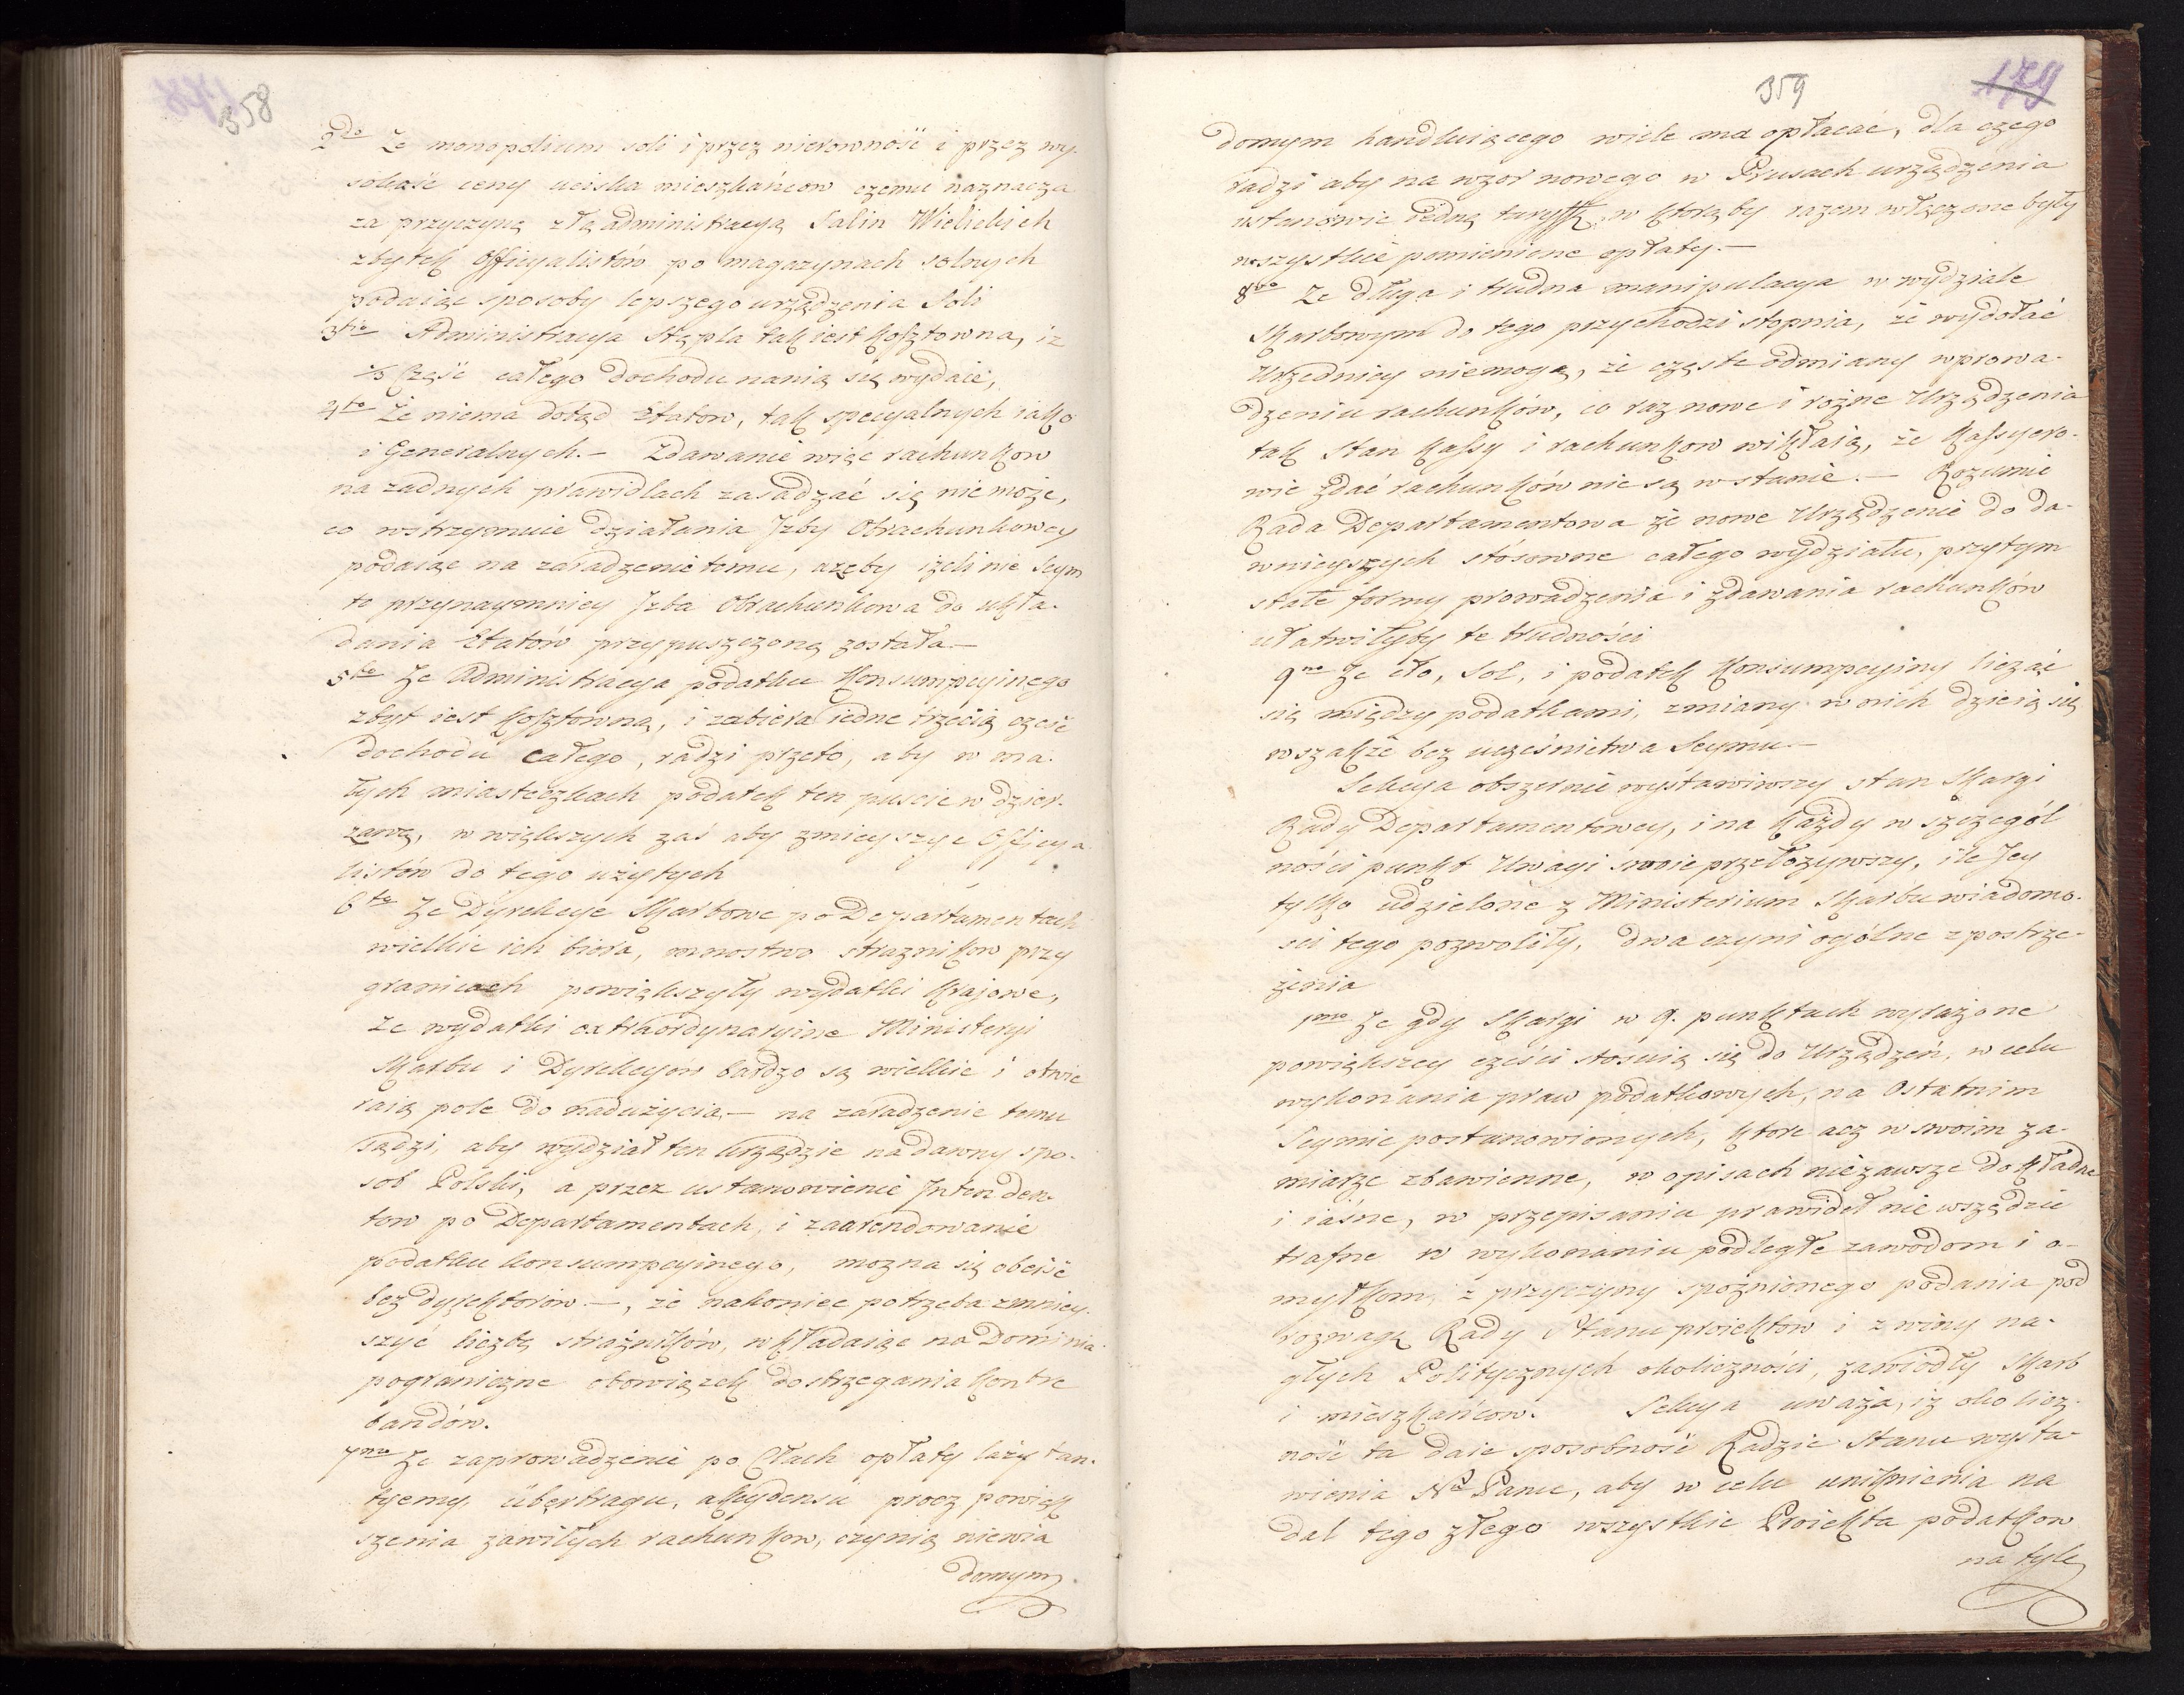 358
2do Że monopolium soli i przez nierowność i przez wy-
sokość ceny uciska mieszkańcow czemu naznacza
za przyczynę złą administracyą Salin Wielickich
zbytek Officyalistów po magazynach solnych
podaiąc sposoby lepszego urządzenia Soli
3tio Administracya Stępla tak iest kosztowna, iz
1/3 Część całego dochodu nanią się wydaie,
4to Że niema dotąd Etatow, tak specyalnych iako
i Generalnych. – Zdawanie więc rachunkow
na zadnych prawidlach zasadzać się nie może,
co wstrzymuie działania Jzby Obrachunkowey
podaiąc na zaradzenie temu, azeby iżeli nie Seym
to przynaymniey Jzba Obrachunkowa do ukła-
dania Etatów przypuszczoną została –
5to Ze Administracya podatku Konsumpcyinego
zbyt iest kosztowną, i zabiera iedne trzecią częsć
dochodu całego, radzi przeto, aby w ma-
łych miasteczkach podatek ten puscic w dzier-
zawę, w większych zaś aby zmieyszyc Officya
listów do tego użytych
6to Ze Dyrekcye Skarbowe po Departamentach
wielkie ich biora, mnostwo straznikow przy
granicach powiększyły wydatki Krajowe,
ze wydatki extraordynaryine Ministeryi
Skarbu i Dyrekcyów bardzo są wielkie i otwie
raią pole do nadużycia – na zaradzenie temu
sądzi, aby wydział ten urządzic na dawny spo-
sob Polski, a przez ustanowienie Jntenden-
tow po Departamentach, i zaarendowanie
podatku konsumpcyinego, mozna się obeisć
bez dyrektorów –, że nakoniec potrzeba zmniey-
szyć liczbę strażników, wkładaiąc na Dominia
pograniczne obowiązek dostrzegania Kontre
bandów.
7mo Ze zaprowadzenie po Cłach opłaty laży tan-
tyemy, übertragu, akcydensu procz powięk
szenia zawiłych rachunkow, czynią niewia
domym
359
179
domym handluiącego wiele ma opłacać, dla czego
radzi aby na wzor nowego w Prusach urządzenia
ustanowic iedną taryffę, w ktorąby razem włączone były
wszystkie pomienione opłaty. –
8vo Ze długa i trudna manipulacya w wydziale
Skarbowym do tego przychodzi stopnia, że wydołać
Urzędnicy niemogą, że częste odmiany wprowa-
dzeniu rachunków, co raz nowe i rożne Urządzenia
tak stan Kassy i rachunkow wikłaią, że Kassyero-
wie zdać rachunków nie są w stanie. – Rozumie
Rada Departamentowa że nowe Urządzenie do da-
wnieyszych stósowne całego wydziału, przytym
stałe formy prowadzenia i zdawania rachunków
ułatwiłyby te trudności
9no Ze cło, sol, i podatek Konsumpcyiny liczać
się między podatkami, zmiany w nich dzieią się
wszakże bez uczesnictwa Seymu. –
Sekcya obszernie wystawiwszy stan Skargi
Rady Departamentowey, i na każdy w szczegól
ności punkt Uwagi swoie przełożywszy, ile Jey
tylko udzielone z Ministerium Skarbu wiadomo-
sci tego pozwoliły, dwa czyni ogólne zpostrze-
żenia
1mo Ze gdy Skargi w 9. punktach wyrażone
powiększey części stosuią się do Urządzeń, w celu
wykonania praw podatkowych, na Ostatnim
Seymie postanowionych, ktore acz w swoim za-
miarze zbawienne, w opisach niezawsze dokładne
i iásne, w przepisaniu prawideł nie wszędzie
trafne w wykonaniu podległe zawodom i o-
myłkom, z przyczyny spoźnionego podania pod
rozwagę Rady Stanu proiektow i z winy na-
głych Politycznych okoliczności, zawiodły Skarb
i mieszkańcow. Sekcya uważa, iż okolicz-
ność ta daie sposobność Radzie Stanu wysta-
wienia N° Panu, aby w celu uniknienia na
dal tego złego wszystkie Proiekta podatkow
na tyle